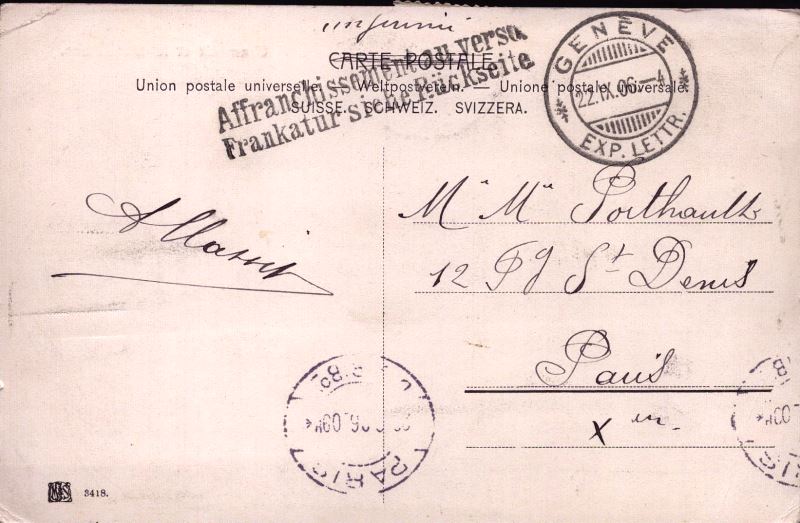 imprimé
CARTE POSTALE.
Union postale universelle. — Weltpostverein. — Unione postale universale.
SUISSE. SCHWEIZ. SVIZZERA.
Affranchissement au verso.
Frankatur siehe Rückseite
GENÈVE
22.IX.06.–4
EXP. LETTR.
Mr Mme Porthault
12 Fg St Denis
Paris
Xm
PARIS
PARIS
3418.